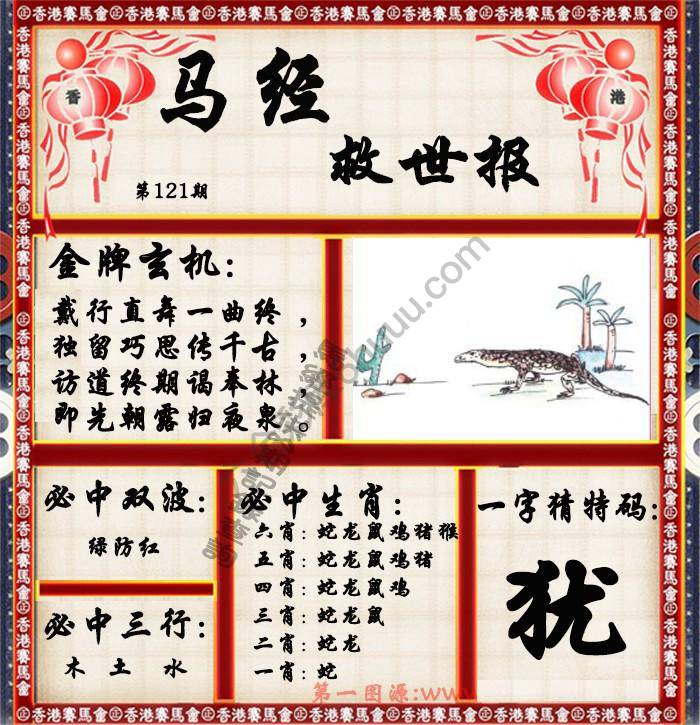 香港賽馬會
香
港
马经
救世报
第121期
金牌玄机:
戴行直舞一曲终，
独留巧思传千古，
访道终期谒奉林，
即先朝露归夜泉。
必中双波:
绿防红
必中三行:
木 土 水
必中生肖:
六肖: 蛇龙鼠鸡猪猴
五肖: 蛇龙鼠鸡猪
四肖: 蛇龙鼠鸡
三肖: 蛇龙鼠
二肖: 蛇龙
一肖: 蛇
一字猜特码:
犹
第一图源:www